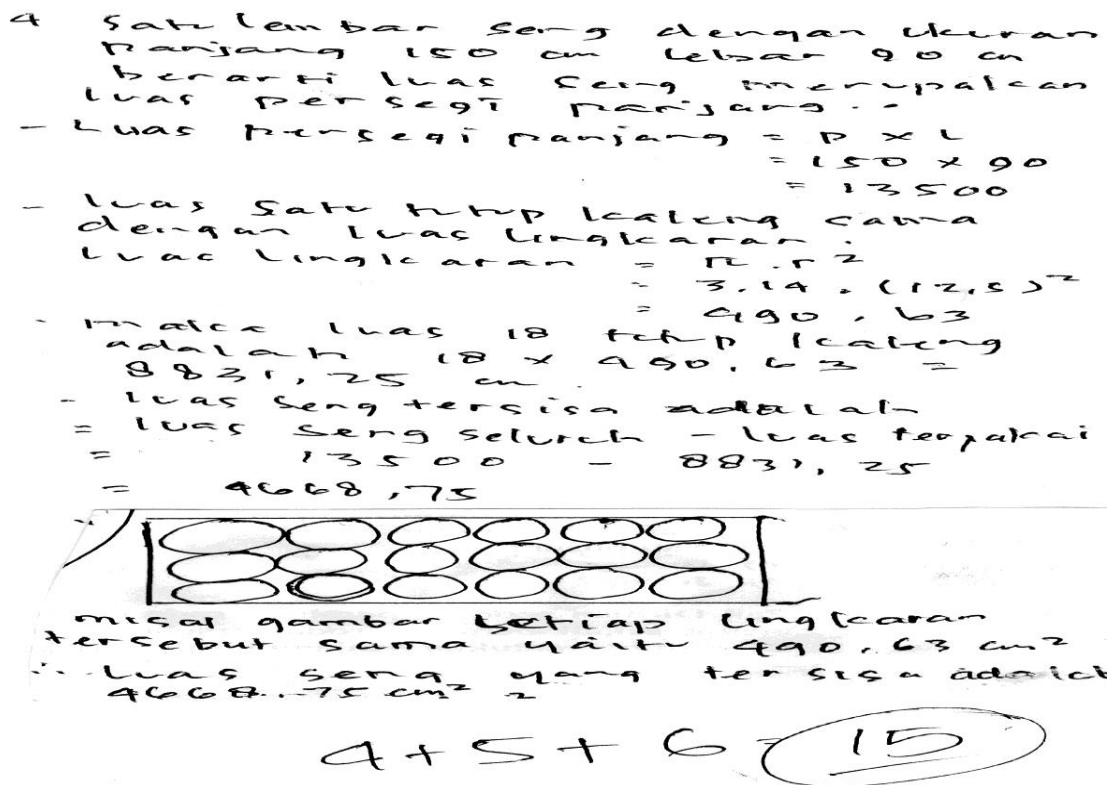 4 Satu lembar seng dengan ukuran
panjang 150 cm lebar 90 cm
berarti luas seng merupakan
luas persegi panjang..
- Luas persegi panjang = P x L
= 150 x 90
= 13500
- luas satu tutup kaleng sama
dengan luas lingkaran.
luas lingkaran = π . r²
= 3,14 . (12,5)²
= 490,63
- maka luas 18 tutup kaleng
adalah 18 x 490,63 =
8831,25 cm.
- luas seng tersisa adalah
= luas seng seluruh - luas terpakai
= 13500 - 8831,25
= 4668,75
misal gambar setiap lingkaran
tersebut sama yaitu 490,63 cm²
∴ Luas seng yang tersisa
4668,75 cm²
4 + 5 + 6 = 15